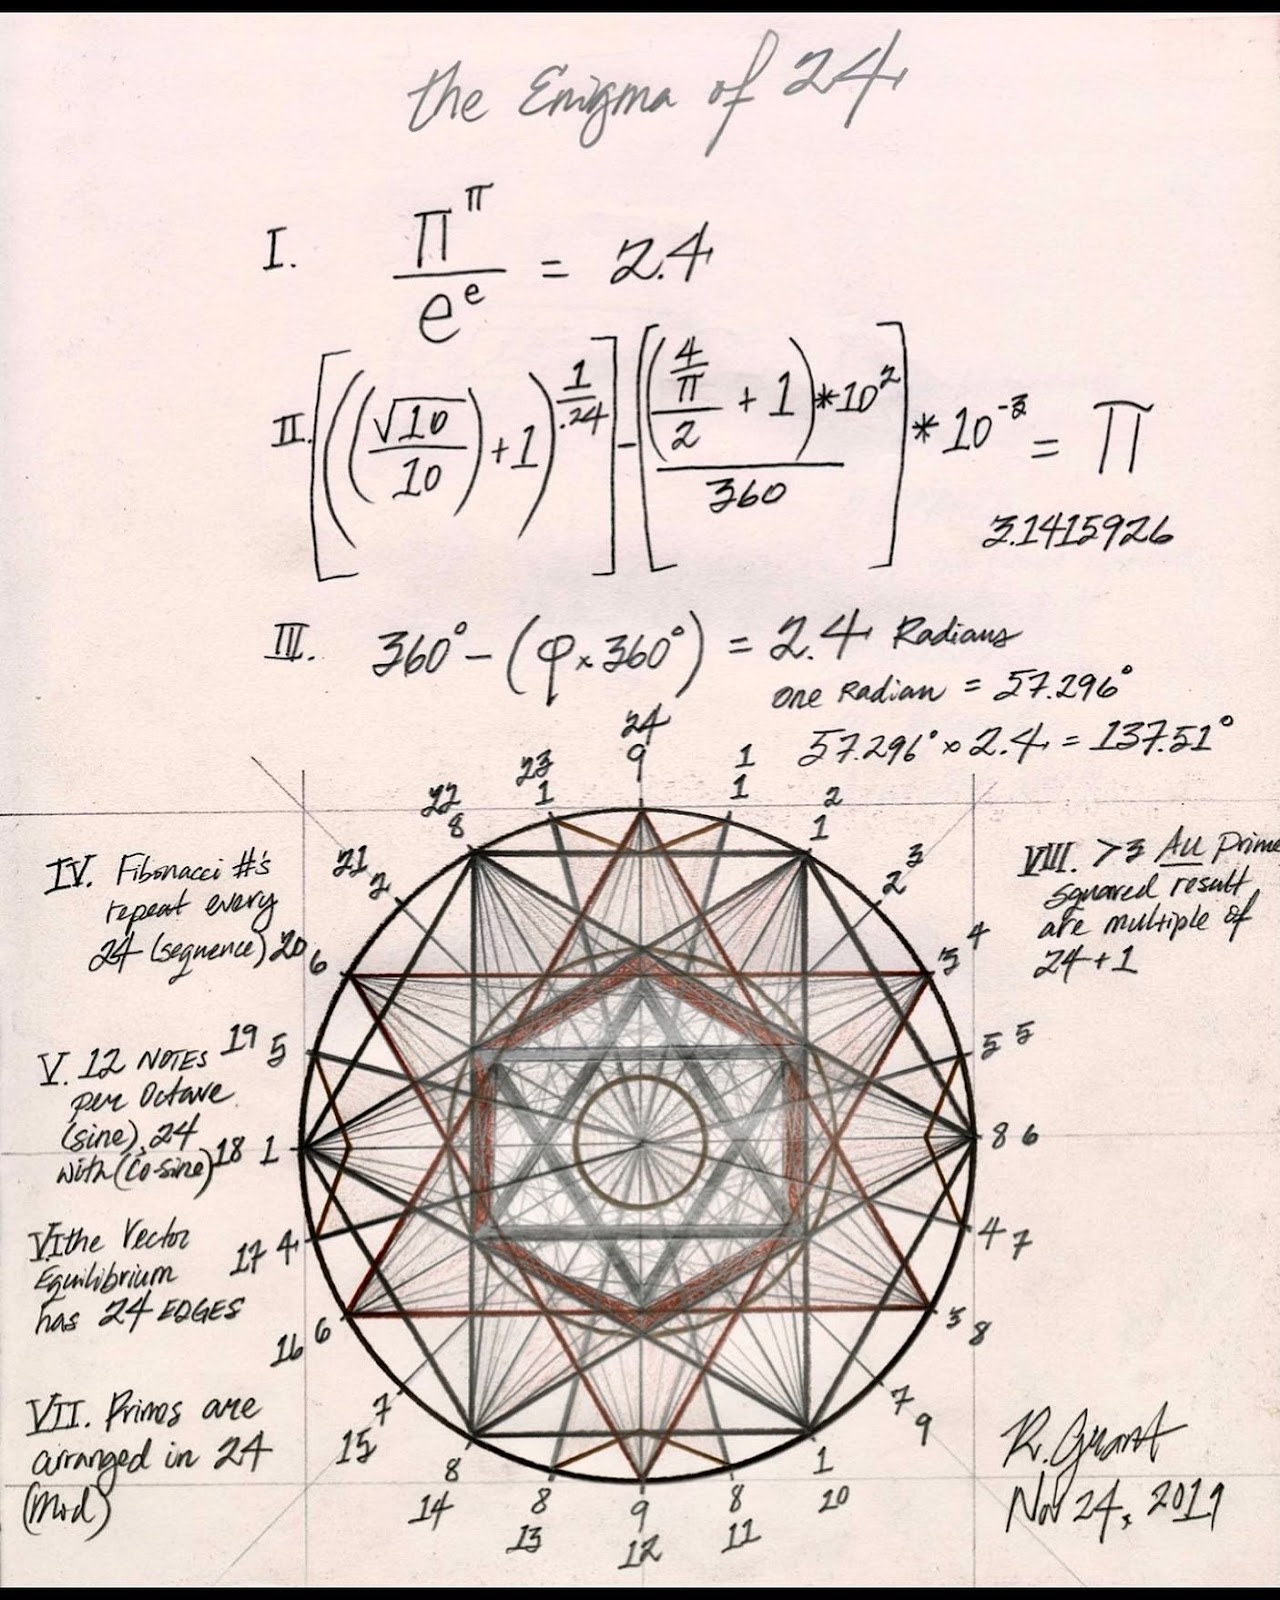 the Enigma of 24
I. π^π / e^e = 2.4
II. [((√10 / 10) + 1)^(1/.24)] - [((4/π)/2 + 1) * 10^2 / 360] * 10^-3 = π
3.1415926
III. 360° - (φ x 360°) = 2.4 Radians
one Radian = 57.296°
57.296° x 2.4 = 137.51°
24
9
23
1
1
1
22
8
2
1
21
2
3
2
20
6
4
5
19
5
5 5
18 1
8 6
17 4
4 7
16 6
3 8
15
7
7
9
14
8
1
10
13
8
8
11
9
12
IV. Fibonacci #'s
repeat every
24 (sequence)
V. 12 NOTES
per Octave
(sine). 24
with (Co-sine)
VI the Vector
Equilibrium
has 24 EDGES
VII. Primes are
arranged in 24
(Mod)
VIII. >3 ALL Prime
squared result
are multiple of
24 + 1
R. Grant
Nov 24, 2019